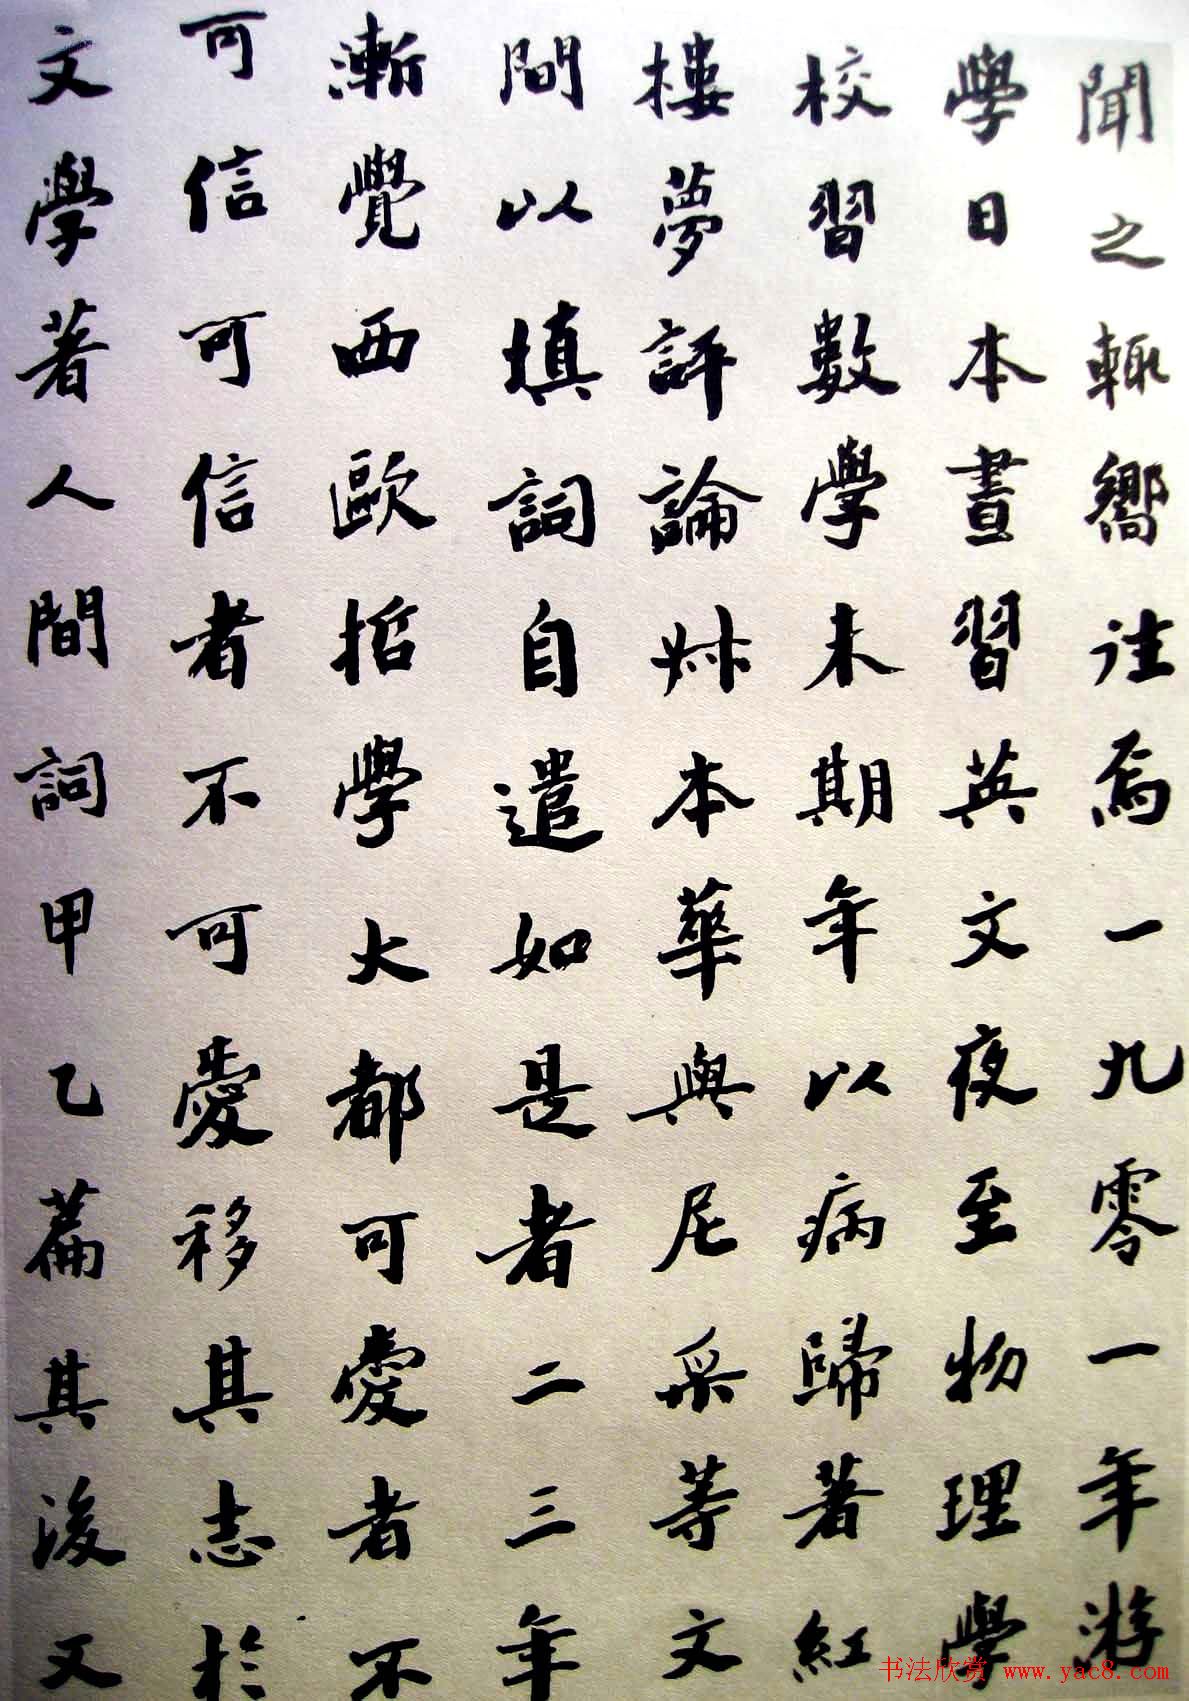 聞之輒嚮往焉一九零一年游
學日本晝習英文夜至物理學
校習數學未期年以病歸著紅
樓夢評論叔本華與尼采等文
間以填詞自遣如是者二三年
漸覺西歐哲學大都可愛者不
可信可信者不可愛移其志於
文學著人間詞甲乙篇其後又
书法欣赏 www.yac8.com